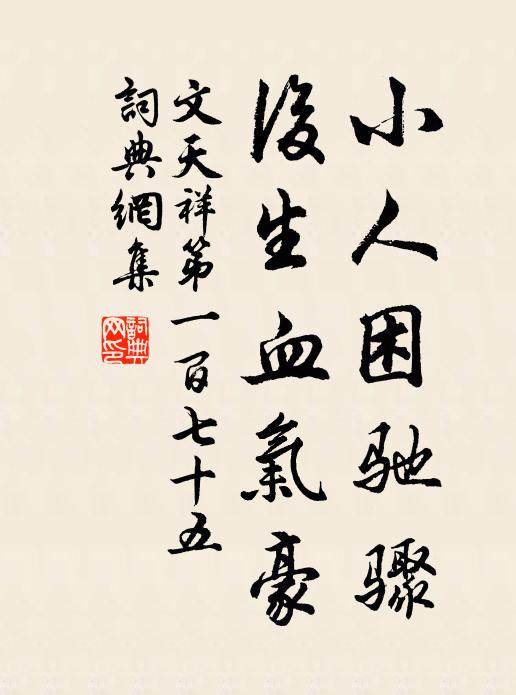 小人困驰骤
後生血氣豪
文天祥第一百七十五
詞典網集
詞典网印